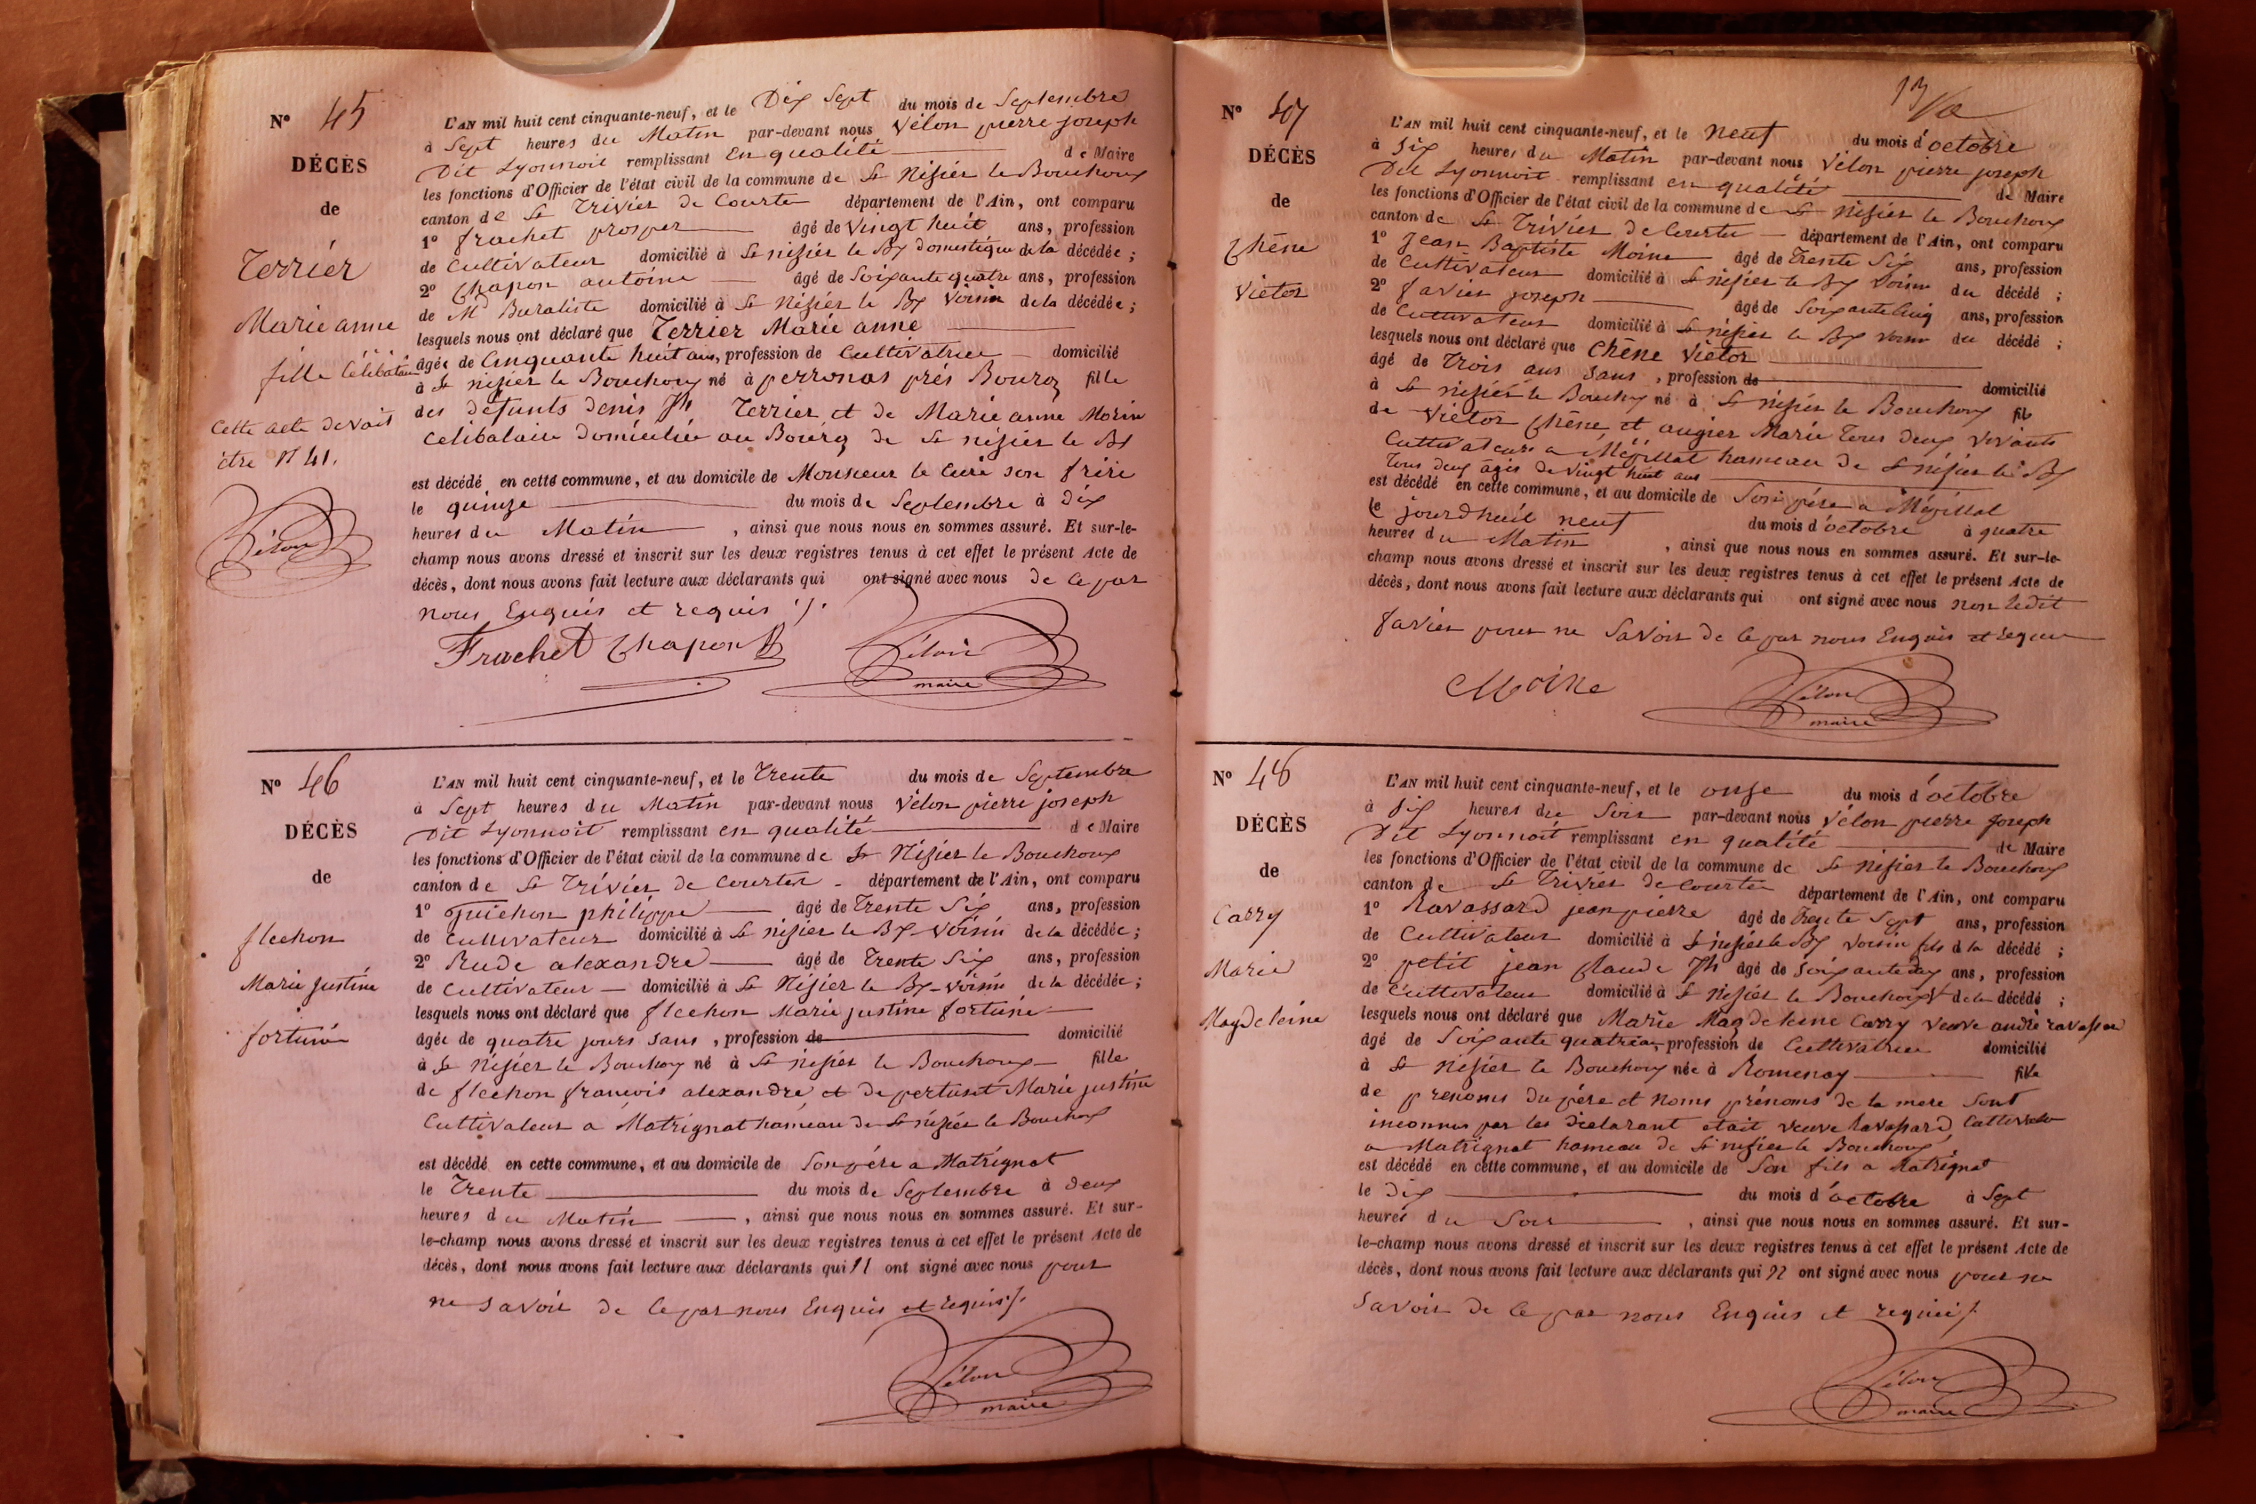 N° 45
DÉCÈS
de
Terrier
Marie anne
fille Célibataire
Cette acte devait
être N° 41.
Vélon
L'AN mil huit cent cinquante-neuf, et le Dix Sept du mois de Septembre
à Sept heures du Matin par-devant nous Vélon pierre joseph
Dit Lyonnoit remplissant En qualité de Maire
les fonctions d'Officier de l'état civil de la commune de St Nisier le Bouchoux
canton de St Trivier de Courte département de l'Ain, ont comparu
1° frachet prosper âgé de Vingt huit ans, profession
de Cultivateur domicilié à St nisier le Bx domestique de la décédée ;
2° Chapon antoine âgé de Soixante quatre ans, profession
de Md Buraliste domicilié à St Nisier le Bx Voisin de la décédée ;
lesquels nous ont déclaré que Terrier Marie anne
âgée de Cinquante huit ans, profession de Cultivatrice domicilié
à St nisier le Bouchoux né à perronas près Bourg fille
des défunts denis Jh Terrier et de Marie anne Morin
Celibataire domiciliée au Bourg de St nisier le Bx
est décédé en cette commune, et au domicile de Monsieur le Curé son frère
le quinze du mois de Septembre à dix
heures du Matin, ainsi que nous nous en sommes assuré. Et sur-le-
champ nous avons dressé et inscrit sur les deux registres tenus à cet effet le présent Acte de
décès, dont nous avons fait lecture aux déclarants qui ont signé avec nous de ce par
nous Enquis et requis ./.
Frachet Chapon Vélon
maire
N° 46
DÉCÈS
de
flechon
Marie justine
fortuné
L'AN mil huit cent cinquante-neuf, et le Trente du mois de Septembre
à Sept heures du Matin par-devant nous Vélon pierre joseph
Dit Lyonnoit remplissant en qualité de Maire
les fonctions d'Officier de l'état civil de la commune de St Nisier le Bouchoux
canton de St Trivier de Courtes département de l'Ain, ont comparu
1° Guichon philippe âgé de Trente Six ans, profession
de Cultivateur domicilié à St nisier le Bx Voisin de la décédée ;
2° Rude alexandre âgé de Trente Six ans, profession
de Cultivateur domicilié à St Nisier le Bx Voisin de la décédée ;
lesquels nous ont déclaré que flechon Marie justine fortuné
âgée de quatre jours Sans, profession de domicilié
à St Nisier le Bouchoux né à St nisier le Bouchoux fille
de flechon francois alexandre et de pertuset Marie justine
Cultivateur a Matrignat hameau de St nisier le Bouchoux
est décédé en cette commune, et au domicile de Son père a Matrignat
le Trente du mois de Septembre à deux
heures du Matin, ainsi que nous nous en sommes assuré. Et sur-
le-champ nous avons dressé et inscrit sur les deux registres tenus à cet effet le présent Acte de
décès, dont nous avons fait lecture aux déclarants qui n ont signé avec nous pour
ne savoir de ce par nous Enquis et requis ./.
Vélon
maire
N° 47
DÉCÈS
de
Chêne
Victor
L'AN mil huit cent cinquante-neuf, et le neuf du mois d'octobre
à Six heures du Matin par-devant nous Vélon pierre joseph
Dit Lyonnoit remplissant en qualité de Maire
les fonctions d'Officier de l'état civil de la commune de St Nisier le Bouchoux
canton de St Trivier de Courte département de l'Ain, ont comparu
1° Jean Baptiste Moine âgé de Trente Six ans, profession
de Cultivateur domicilié à St nisier le Bx Voisin du décédé ;
2° favier joseph âgé de Soixante Cinq ans, profession
de Cultivateur domicilié à St nisier le Bx voisin du décédé ;
lesquels nous ont déclaré que Chêne Victor
âgé de Trois ans Sans, profession de domicilié
à St nisier le Bouchoux né à St nisier le Bouchoux fils
de Victor Chêne et augier Marie Tous deux vivants
Cultivateurs a Mézillat hameau de St nisier le Bx
Tous deux âgés de Vingt huit ans
est décédé en cette commune, et au domicile de Son père a Mézillat
le jourdhuit neuf du mois d'octobre à quatre
heures du Matin, ainsi que nous nous en sommes assuré. Et sur-le-
champ nous avons dressé et inscrit sur les deux registres tenus à cet effet le présent Acte de
décès, dont nous avons fait lecture aux déclarants qui ont signé avec nous non ledit
favier pour ne Savoir de ce par nous Enquis et requis
Moine Vélon
maire
N° 48
DÉCÈS
de
Carry
Marie
Magdeleine
L'AN mil huit cent cinquante-neuf, et le onze du mois d'octobre
à Six heures du Soir par-devant nous Vélon pierre joseph
Dit Lyonnoit remplissant en qualité de Maire
les fonctions d'Officier de l'état civil de la commune de St Nisier le Bouchoux
canton de St Trivier de Courte département de l'Ain, ont comparu
1° Ravassard jean pierre âgé de Trente Sept ans, profession
de Cultivateur domicilié à St nisier le Bx voisin fils d la décédé ;
2° petit jean Claude Jh âgé de Soixante dix ans, profession
de Cultivateur domicilié à St Nisier le Bouchoux de la décédé ;
lesquels nous ont déclaré que Marie Magdeleine Carry veuve andré ravassard
âgé de Soixante quatre ans, profession de Cultivatrice domicilié
à St Nisier le Bouchoux née à Romenay fille
de prénoms du père et noms prénoms de la mere Sont
inconnus par les déclarant etait veuve Ravassard Cultivateur
a Matrignat hameau de St nisier le Bouchoux
est décédé en cette commune, et au domicile de Son fils a Matrignat
le dix du mois d'octobre à Sept
heures du Soir, ainsi que nous nous en sommes assuré. Et sur-
le-champ nous avons dressé et inscrit sur les deux registres tenus à cet effet le présent Acte de
décès, dont nous avons fait lecture aux déclarants qui n ont signé avec nous pour ne
Savoir de ce par nous Enquis et requis ./.
Vélon
maire